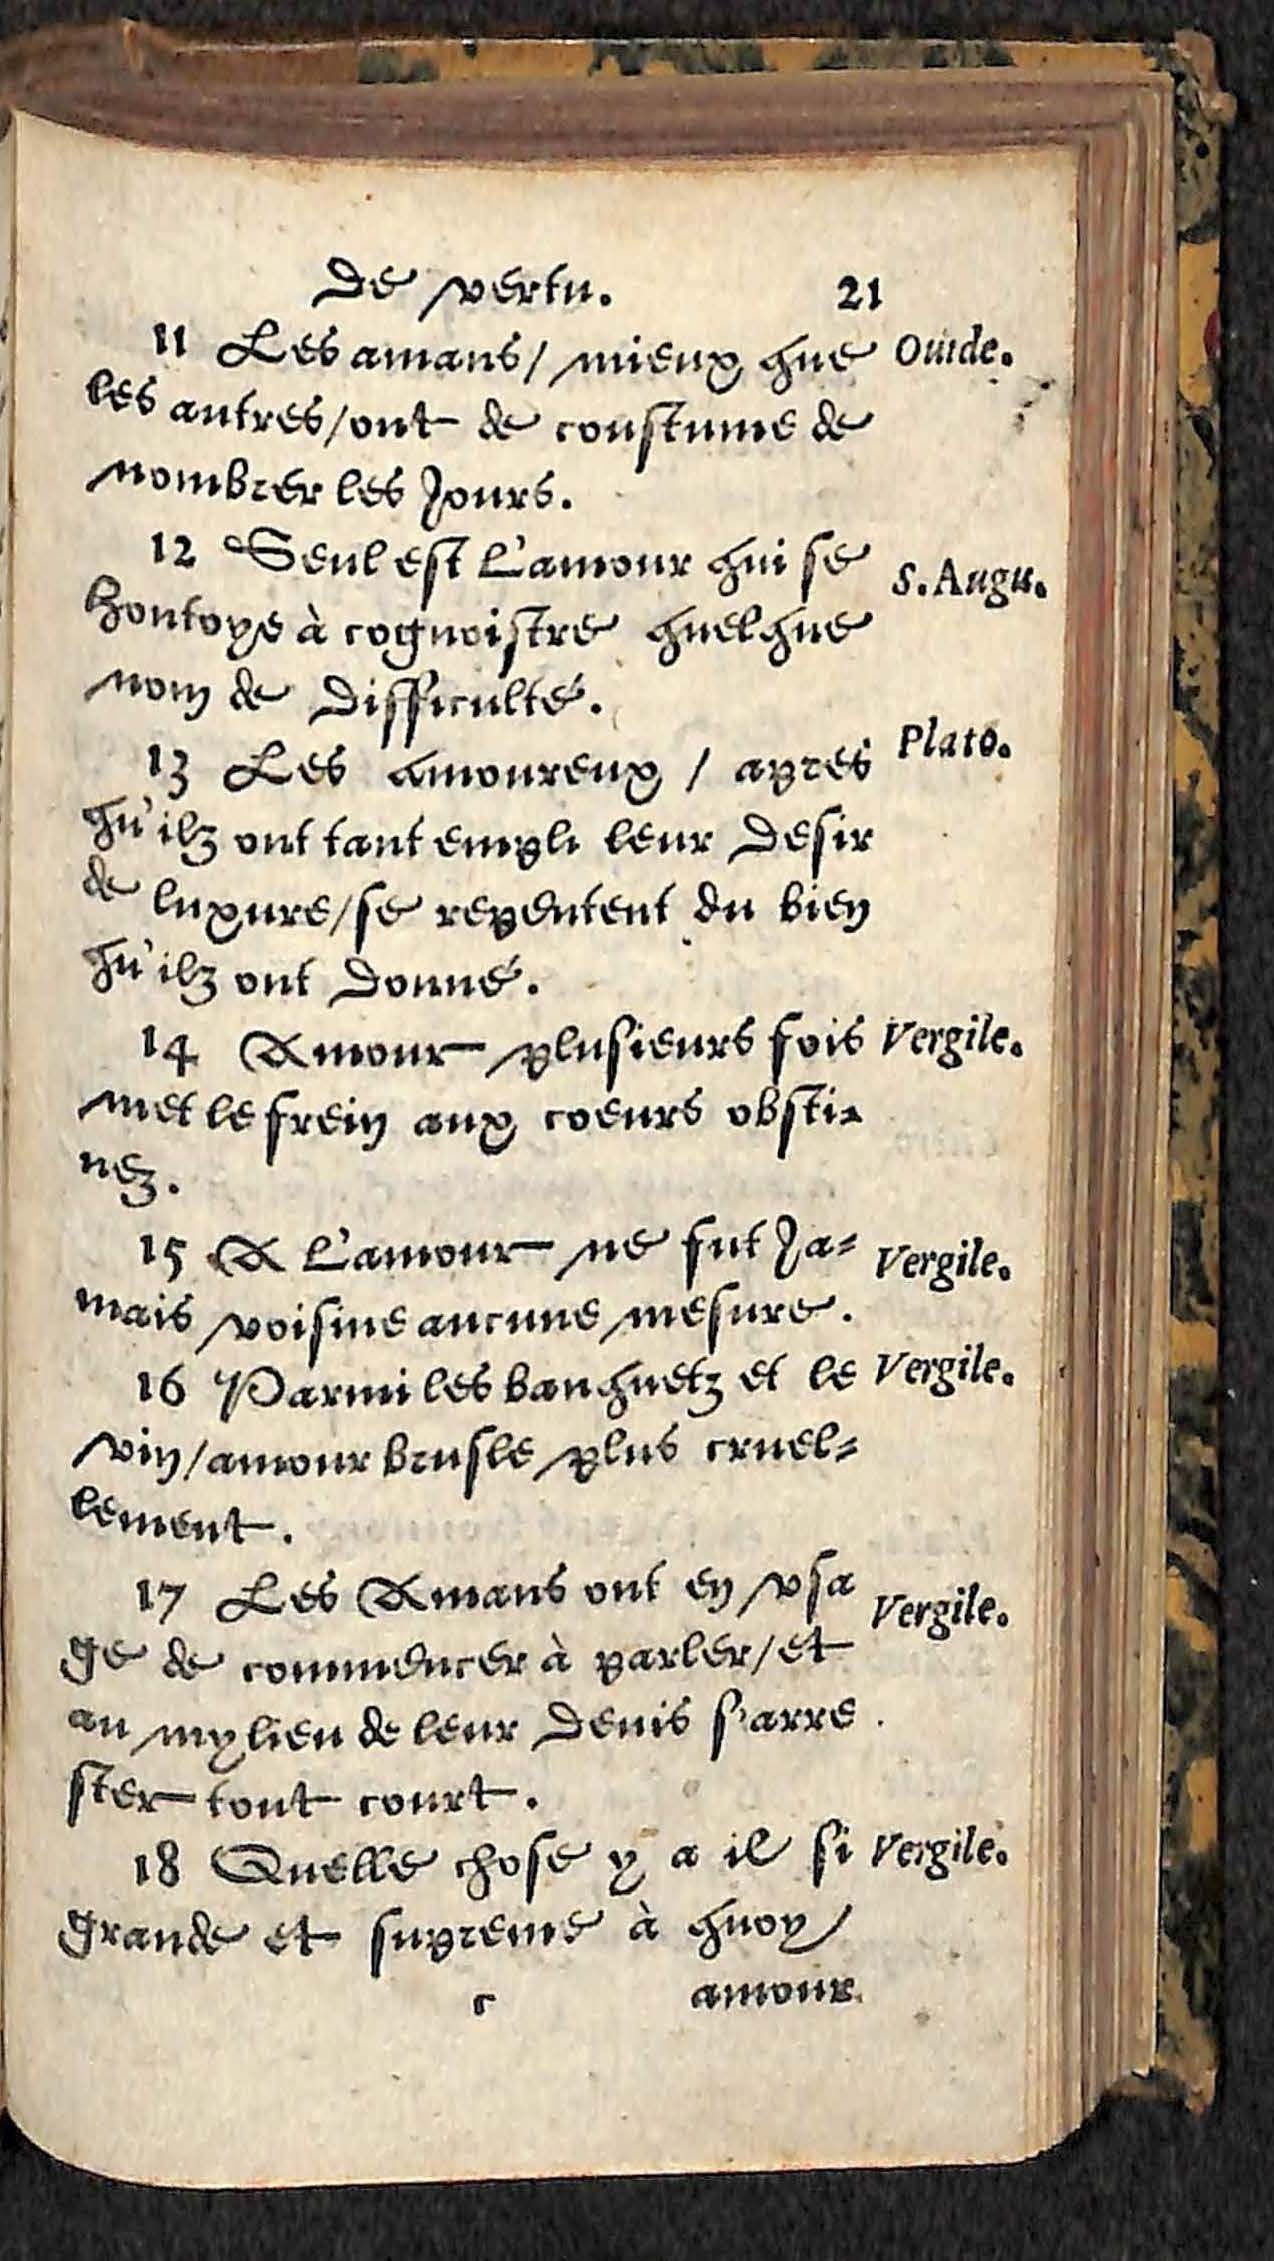 de vertu. 21
11 Les amans/ mieux que Ouide.
les autres/ont de coustume de
nombrer les Jours.
12 Seul est L'amour qui se S. Augu.
hontoye à cognoistre quelque
nom de difficulté.
13 Les amoureux / apres Plato.
qu'ilz ont tant empli leur desir
de luxure/se repentent du bien
qu'ilz ont donné.
14 Amour plusieurs fois Vergile.
met le frein aux coeurs obsti-
nez.
15 A L'amour ne fut Ja- Vergile.
mais voisine aucune mesure.
16 Parmi les banquetz et le Vergile.
vin/amour brusle plus cruel-
lement.
17 Les Amans ont en vsa Vergile.
ge de commencer à parler/et
au mylieu de leur deuis s'arre
ster tout court.
18 Quelle chose y a il si Vergile.
grande et supreme à quoy
c amour